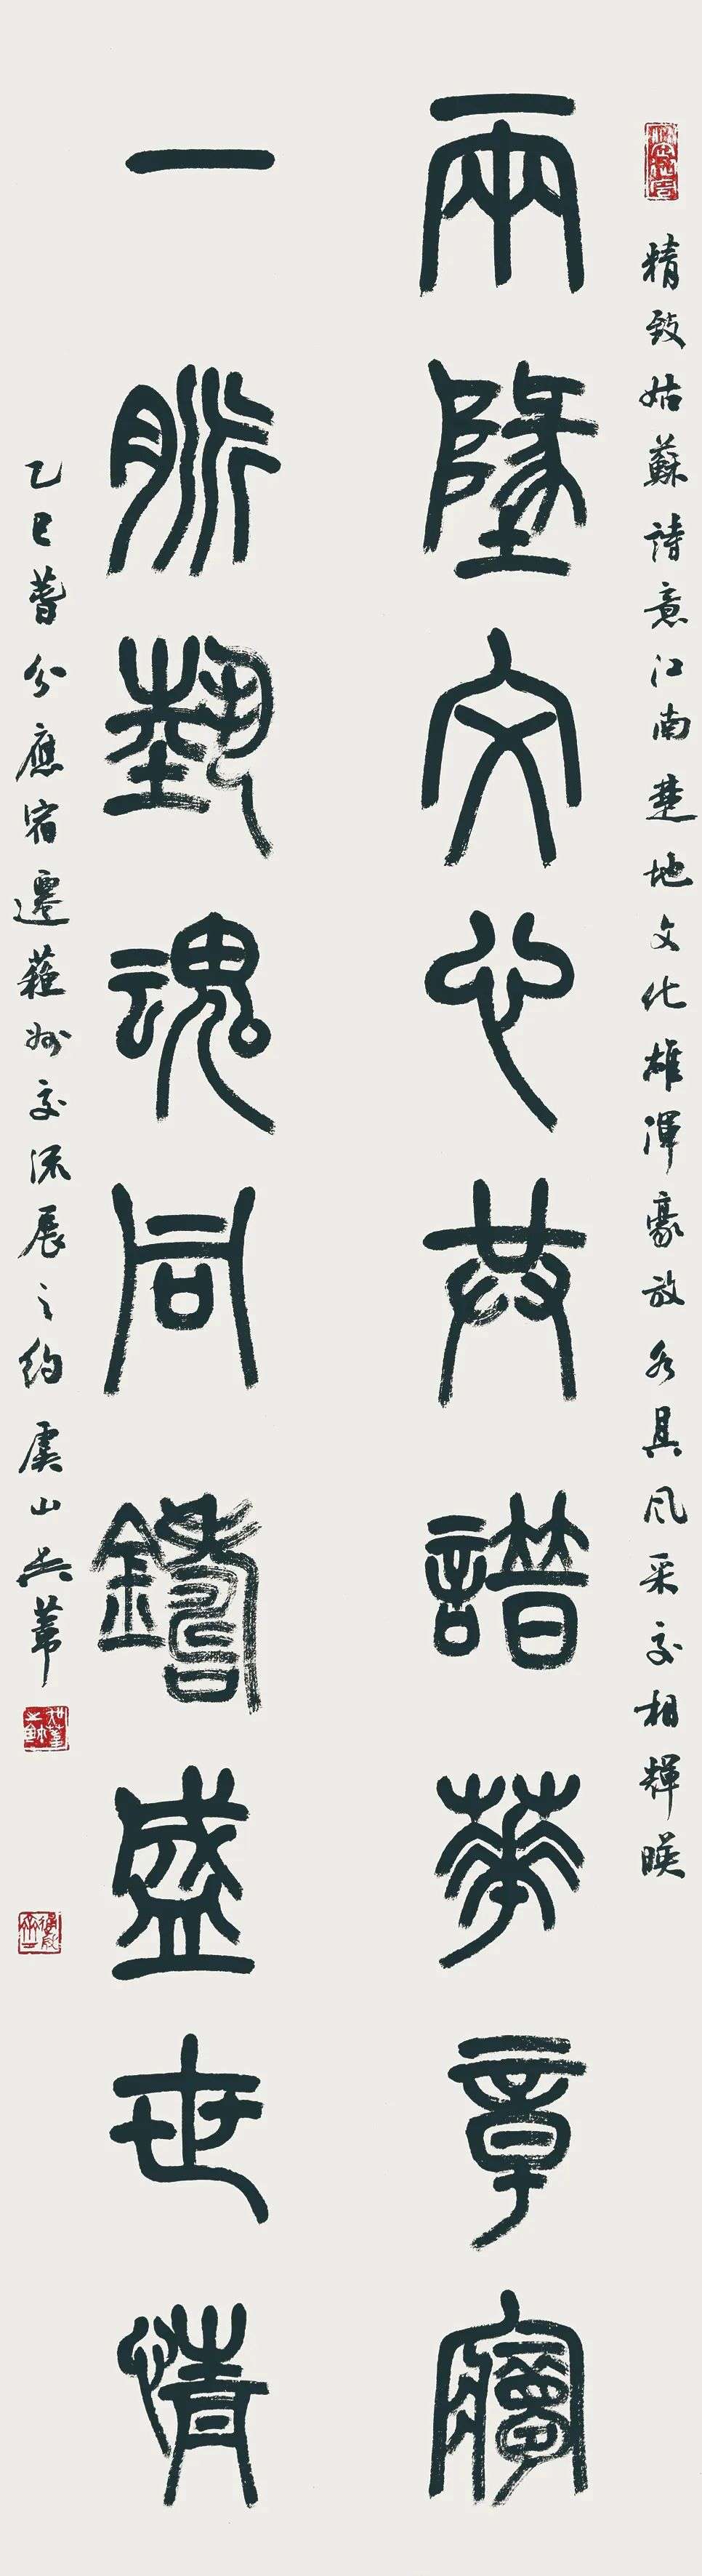 精致姑蘇詩意江南楚地文化雄渾豪放各具風采交相輝暎
兩墬文心共譜華章寱
一脈埶魂同鑄盛世情
乙巳萅分應宿遷蘓州交流展之約虞山吳葦